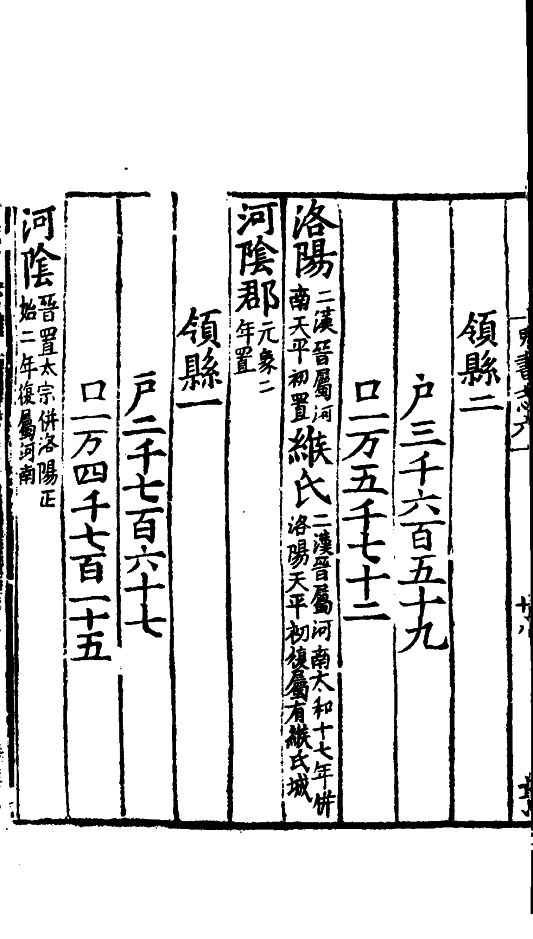 領縣二
户三千六百五十九
口一万五千七十二
洛陽二漢晉屬河南天平初置緱氏二漢晉屬河南太和十七年併洛陽天平初復屬有緱氏城
河陰郡元象二年置
領縣一
户二千七百六十七
口一万四千七百一十五
河陰晉置太宗併洛陽正始二年復屬河南